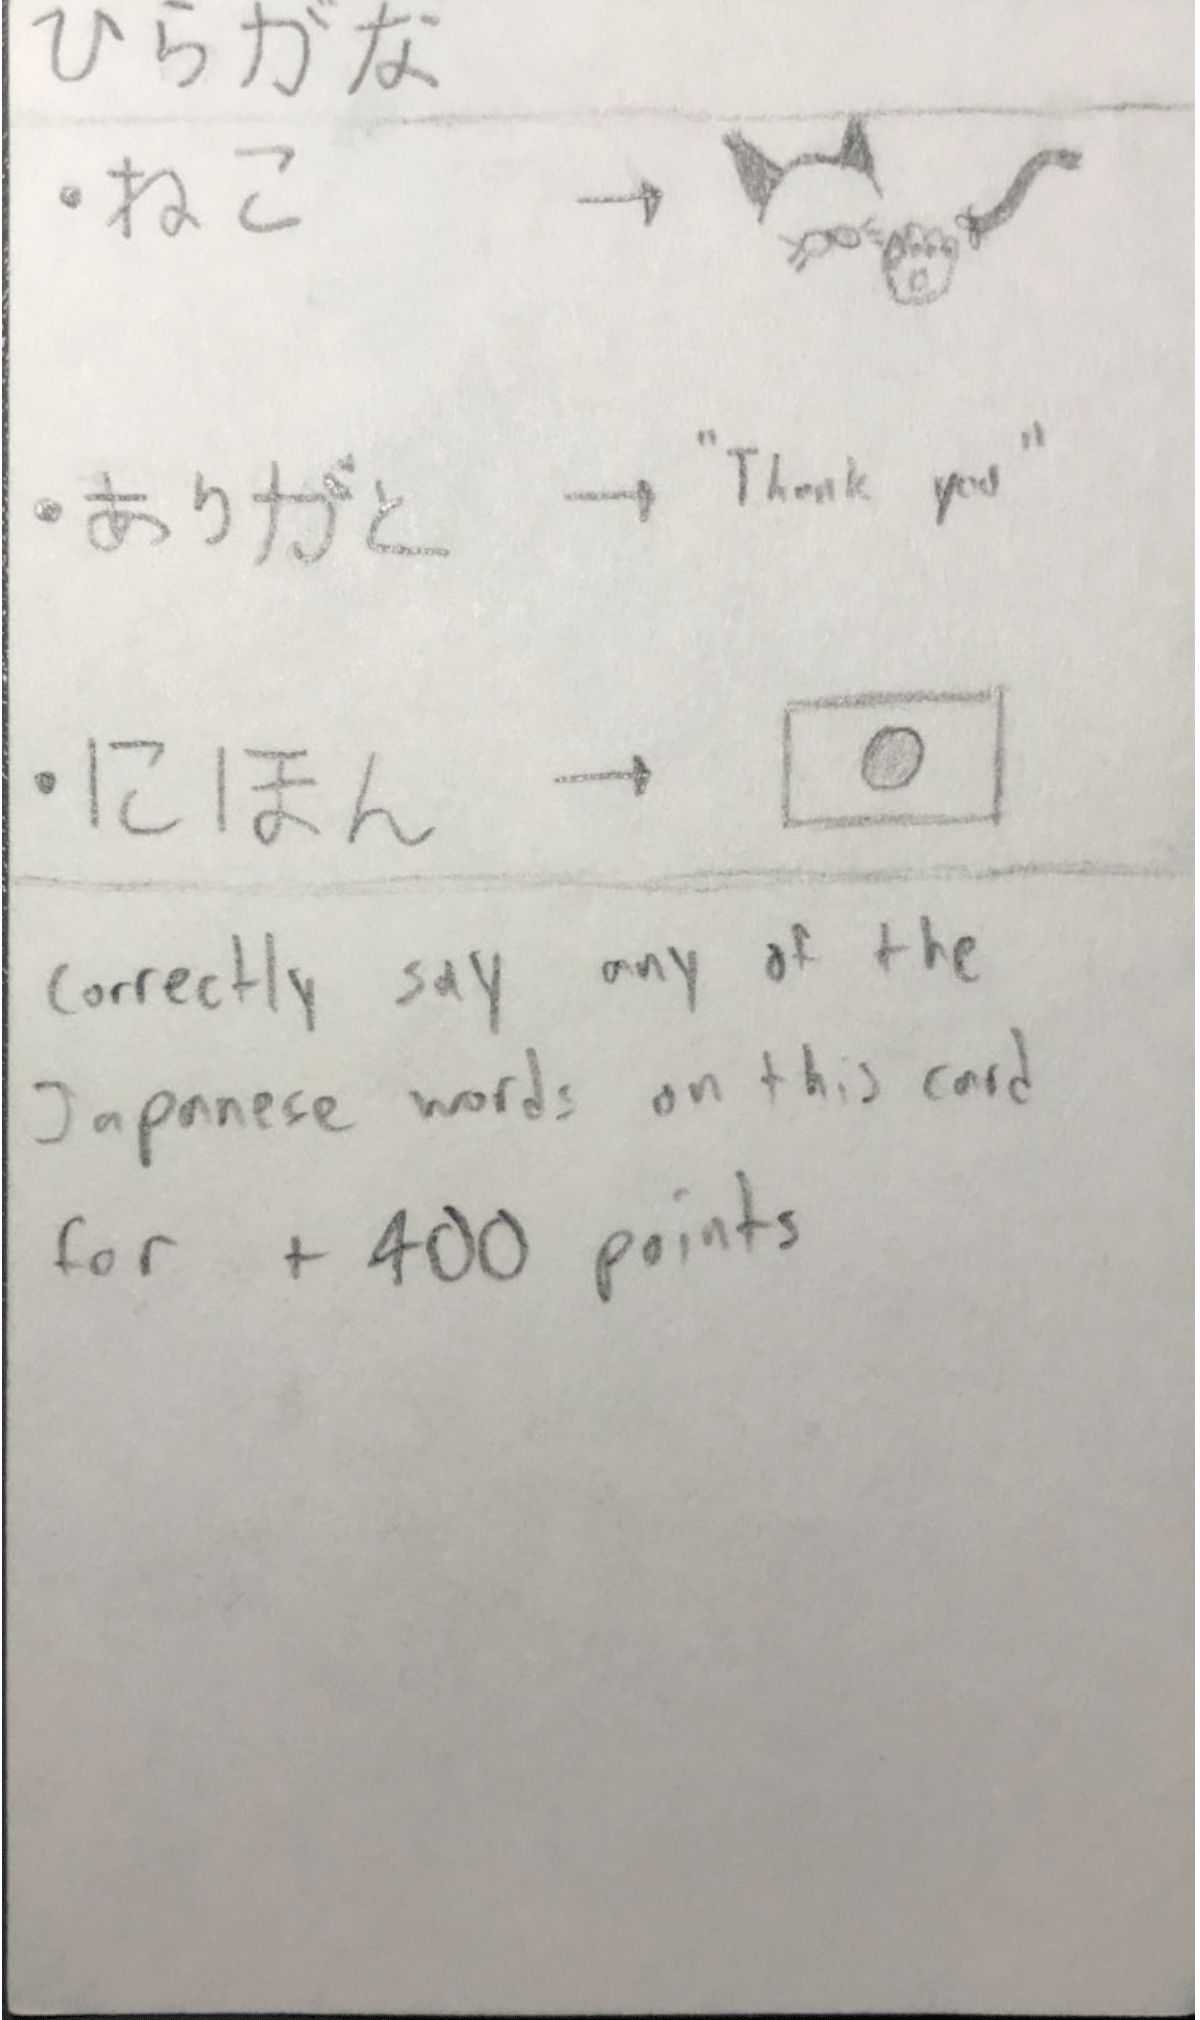 ひらがな
・ねこ →
・ありがと → "Thank you"
・にほん →
Correctly say any of the
Japannese words on this card
for + 400 points